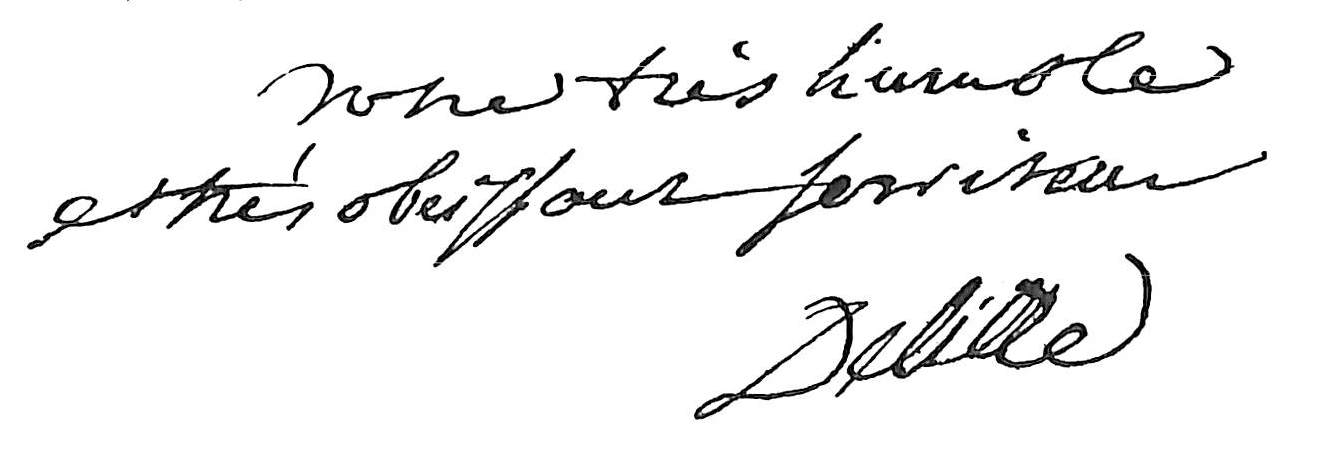 Votre très humble
et très obeissant serviteur
Delille